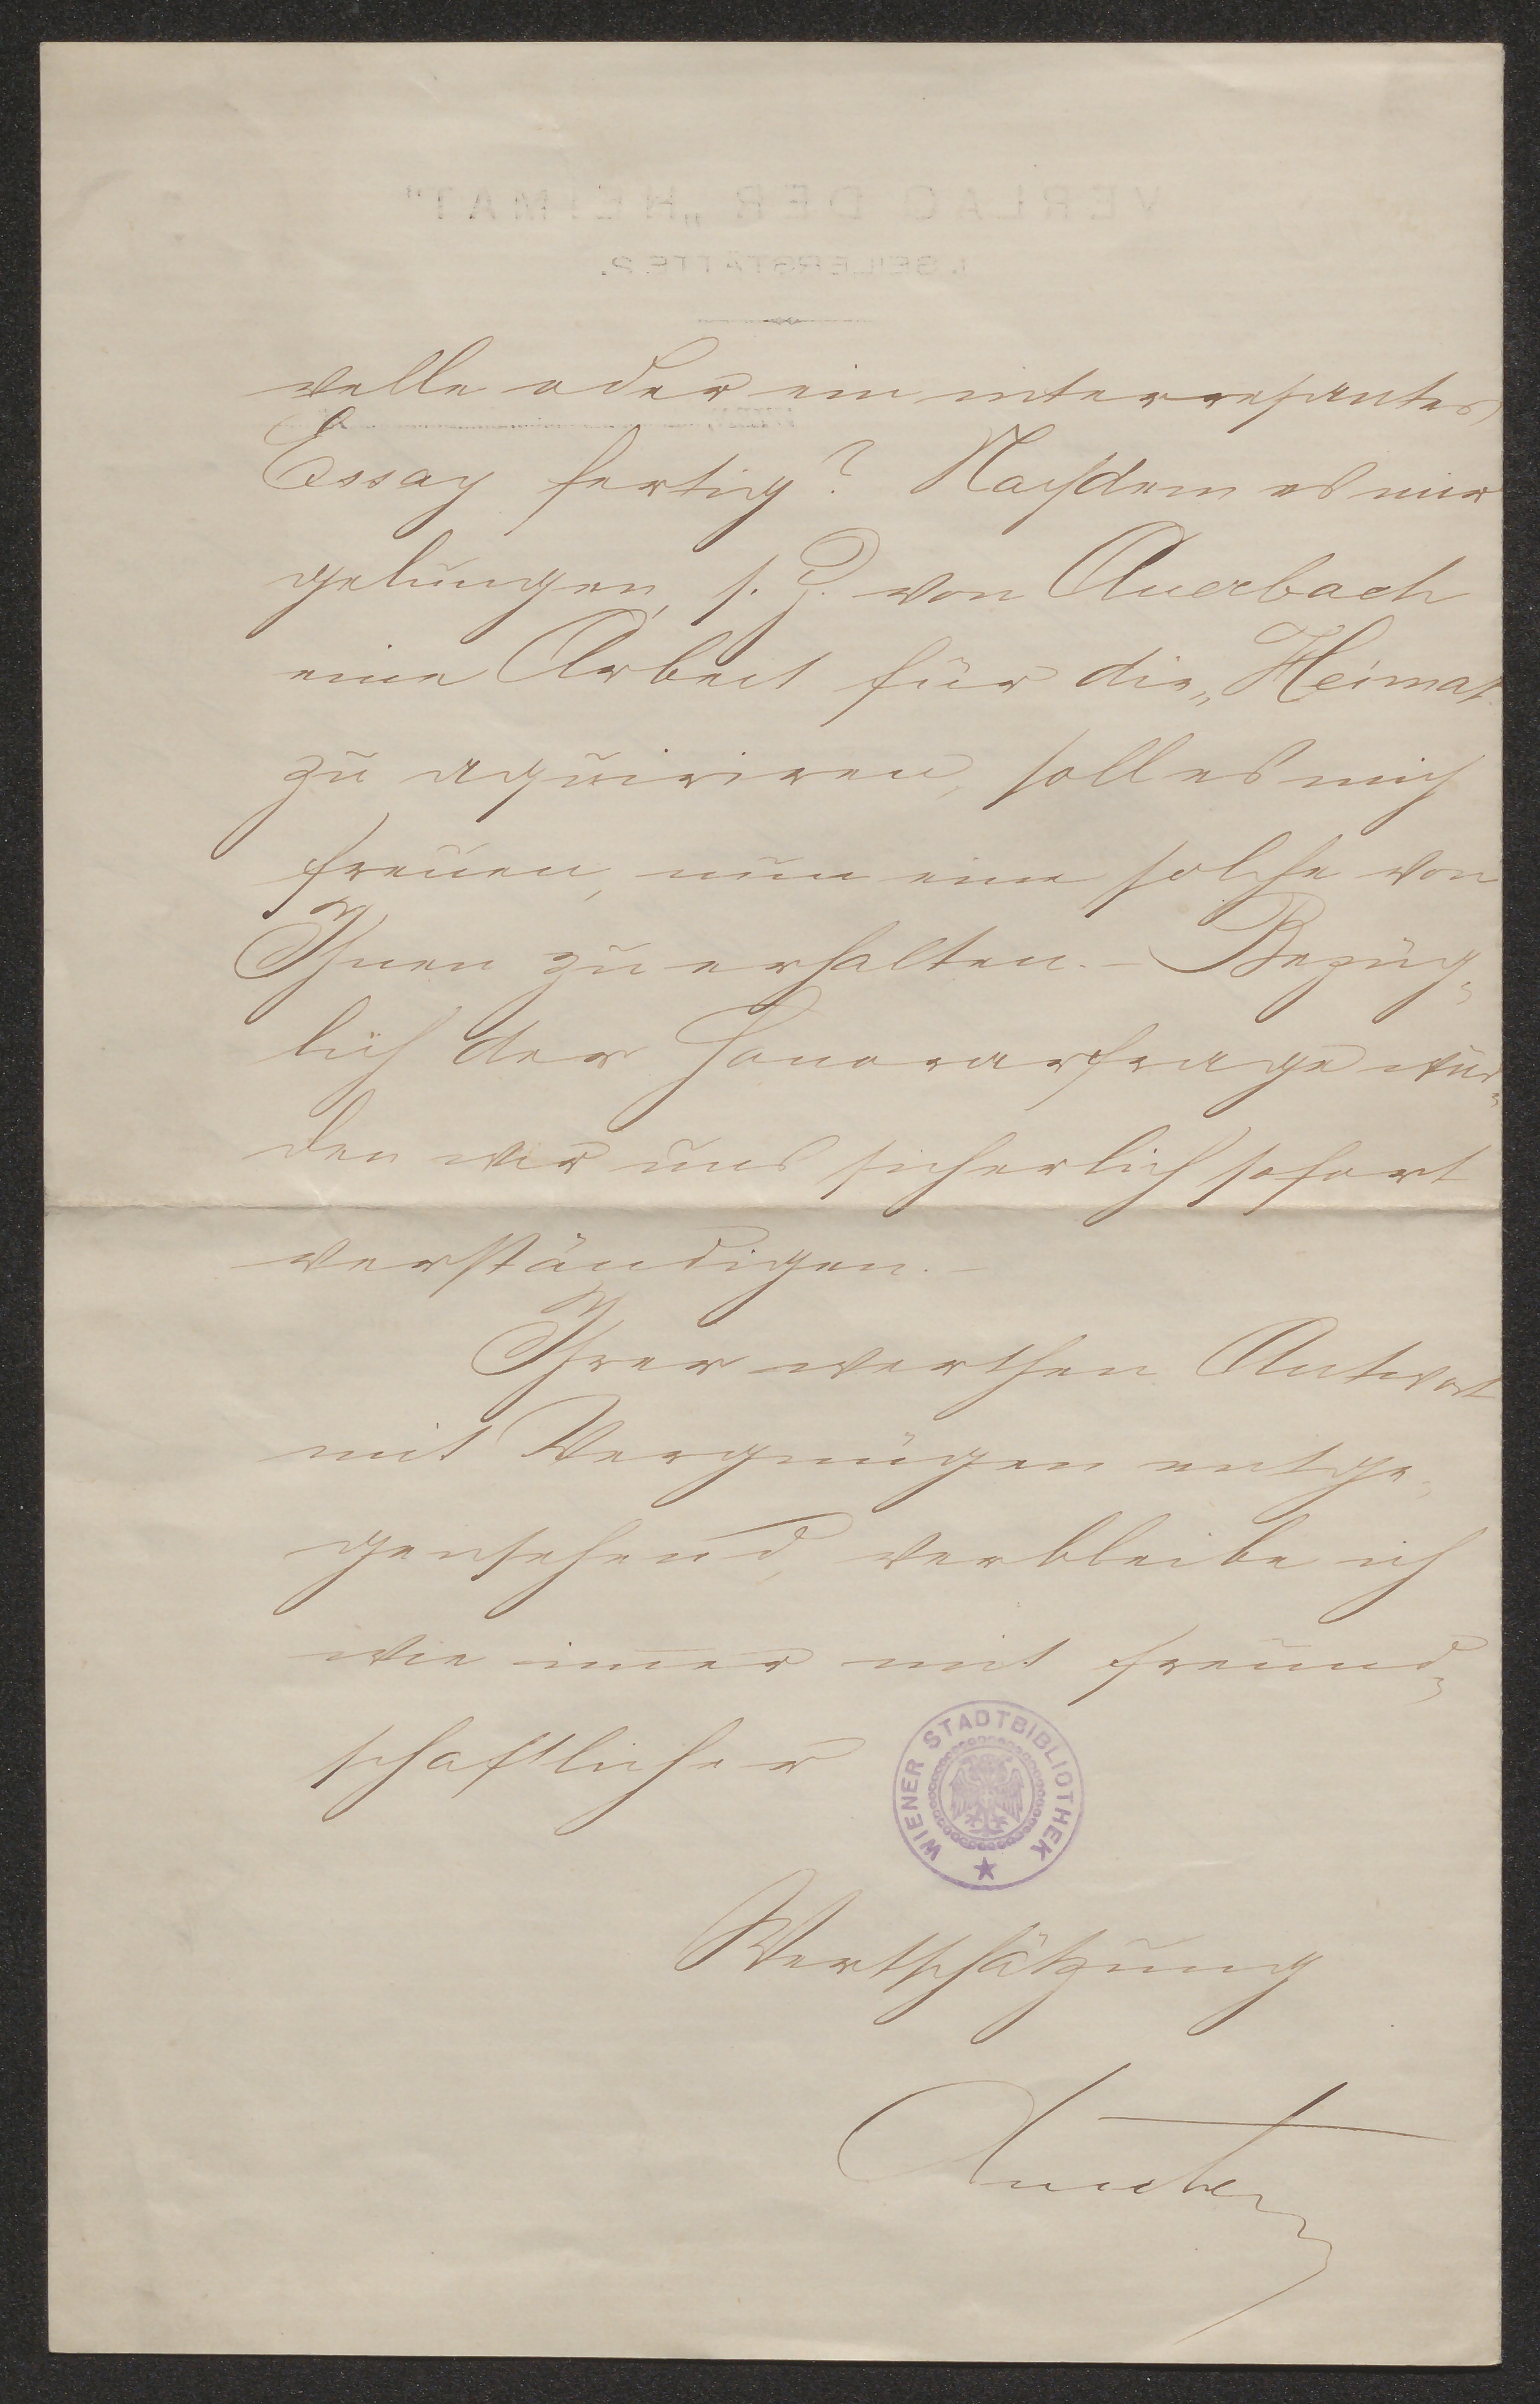 VERLAG DER „HEIMAT"
I. SEILERSTÄTTE 2.
velle oder ein interresantes
Essay fertig? Nachdem es mir
gelungen, s. Z. von Auerbach
eine Arbeit für die „Heimat
zu aquiriren, soll es mich
freuen, nun eine solche von
Ihnen zu erhalten. – Bezüg-
lich der Honorarfrage wür-
den wir uns sicherlich sofort
verständigen. –
Ihrer werthen Antwort
mit Vergnügen entge-
gensehend, verbleibe ich
wie im̅er mit freund-
schaftlicher
WIENER STADTBIBLIOTHEK
Wertschätzung